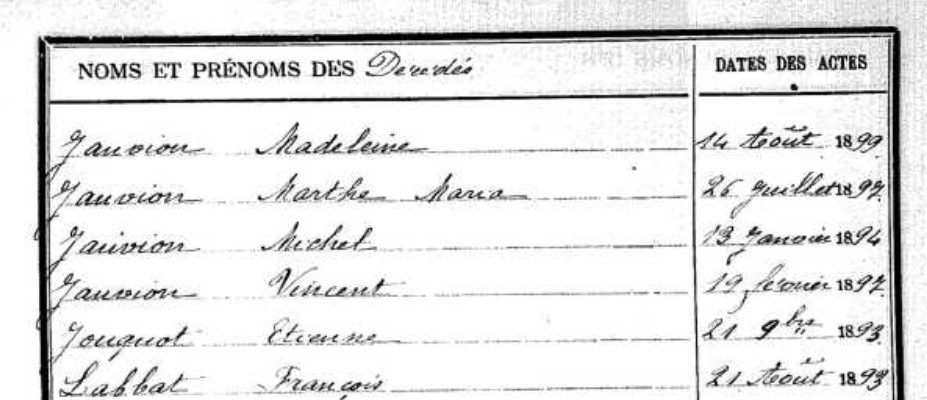 NOMS ET PRÉNOMS DES Décédés DATES DES ACTES
Janvion Madeleine 14 Août 1899
Janvion Marthe Maria 26 Juillet 1897
Janvion Michel 13 Janvier 1894
Janvion Vincent 19 février 1897
Jouquot Etienne 21 9bre 1893
Labbat François 21 Août 1893